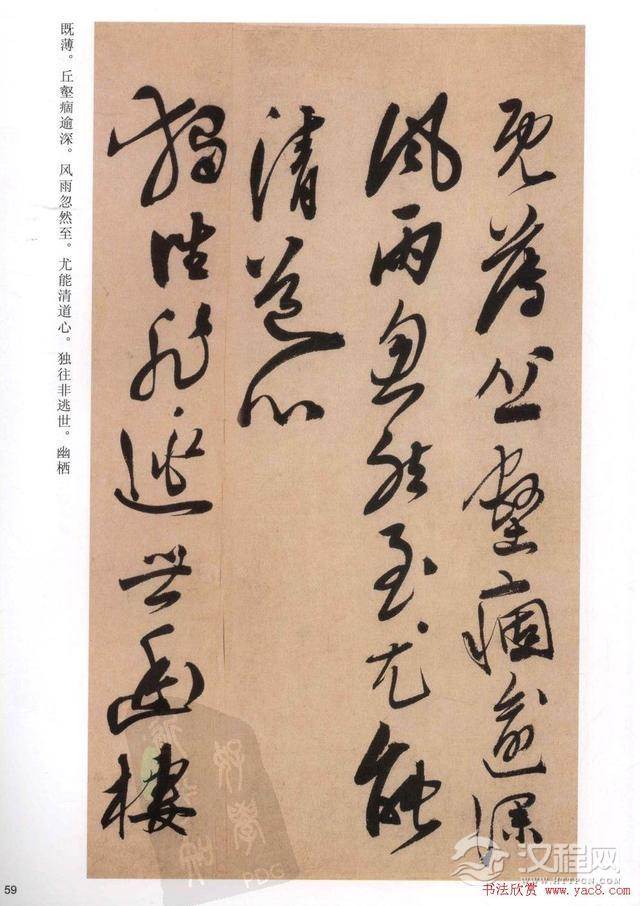 既薄丘壑痼逾深
风雨忽然至尤能
清道心
独往非逃世幽栖
既薄。丘壑痼逾深。风雨忽然至。尤能清道心。独往非逃世。幽栖
59
汉程网
HTTPCN.COM
书法欣赏 www.yac8.com
PDG